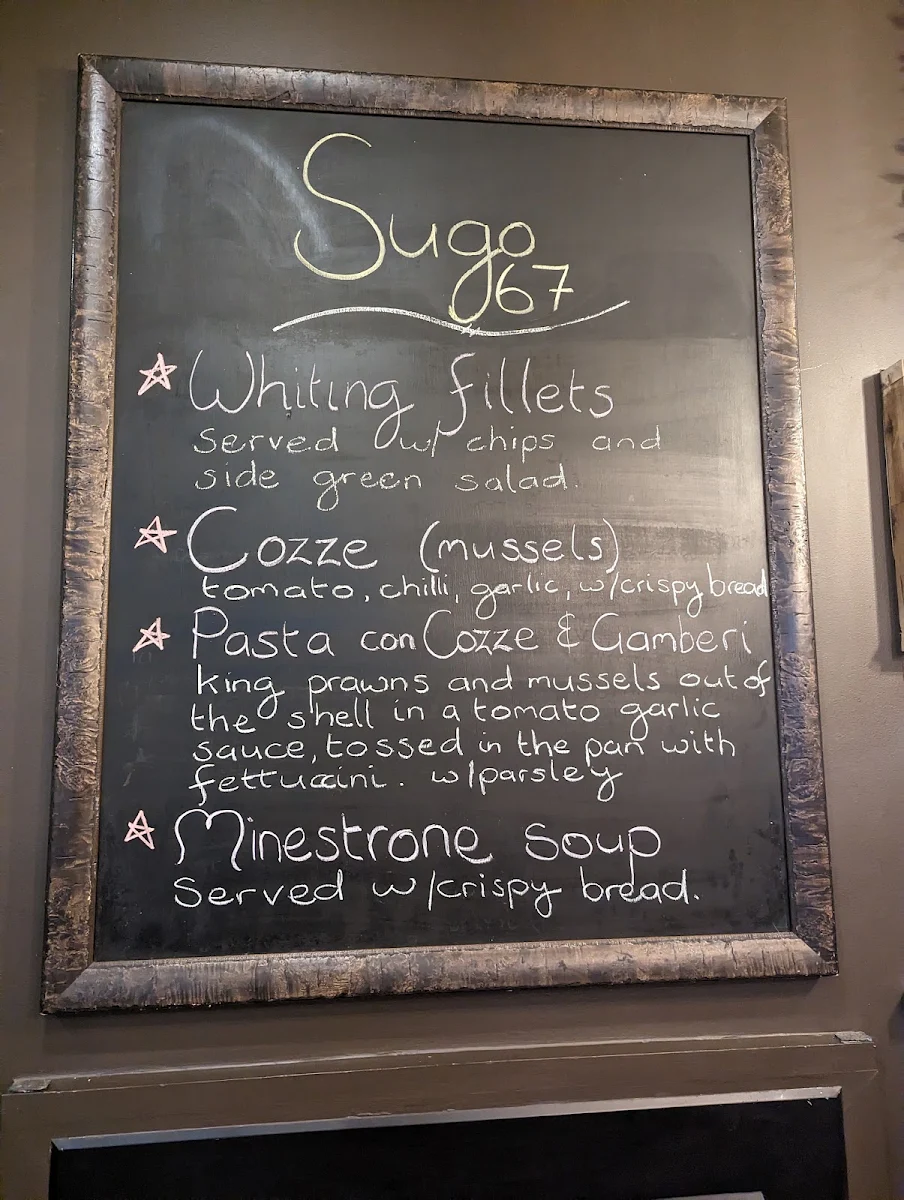 Sugo
67
Whiting fillets
served w/ chips and
side green salad.
Cozze (mussels)
tomato, chilli, garlic, w/crispy bread
Pasta con Cozze & Gamberi
king prawns and mussels out of
the shell in a tomato garlic
sauce, tossed in the pan with
fettuccini. w/parsley
Minestrone soup
Served w/crispy bread.